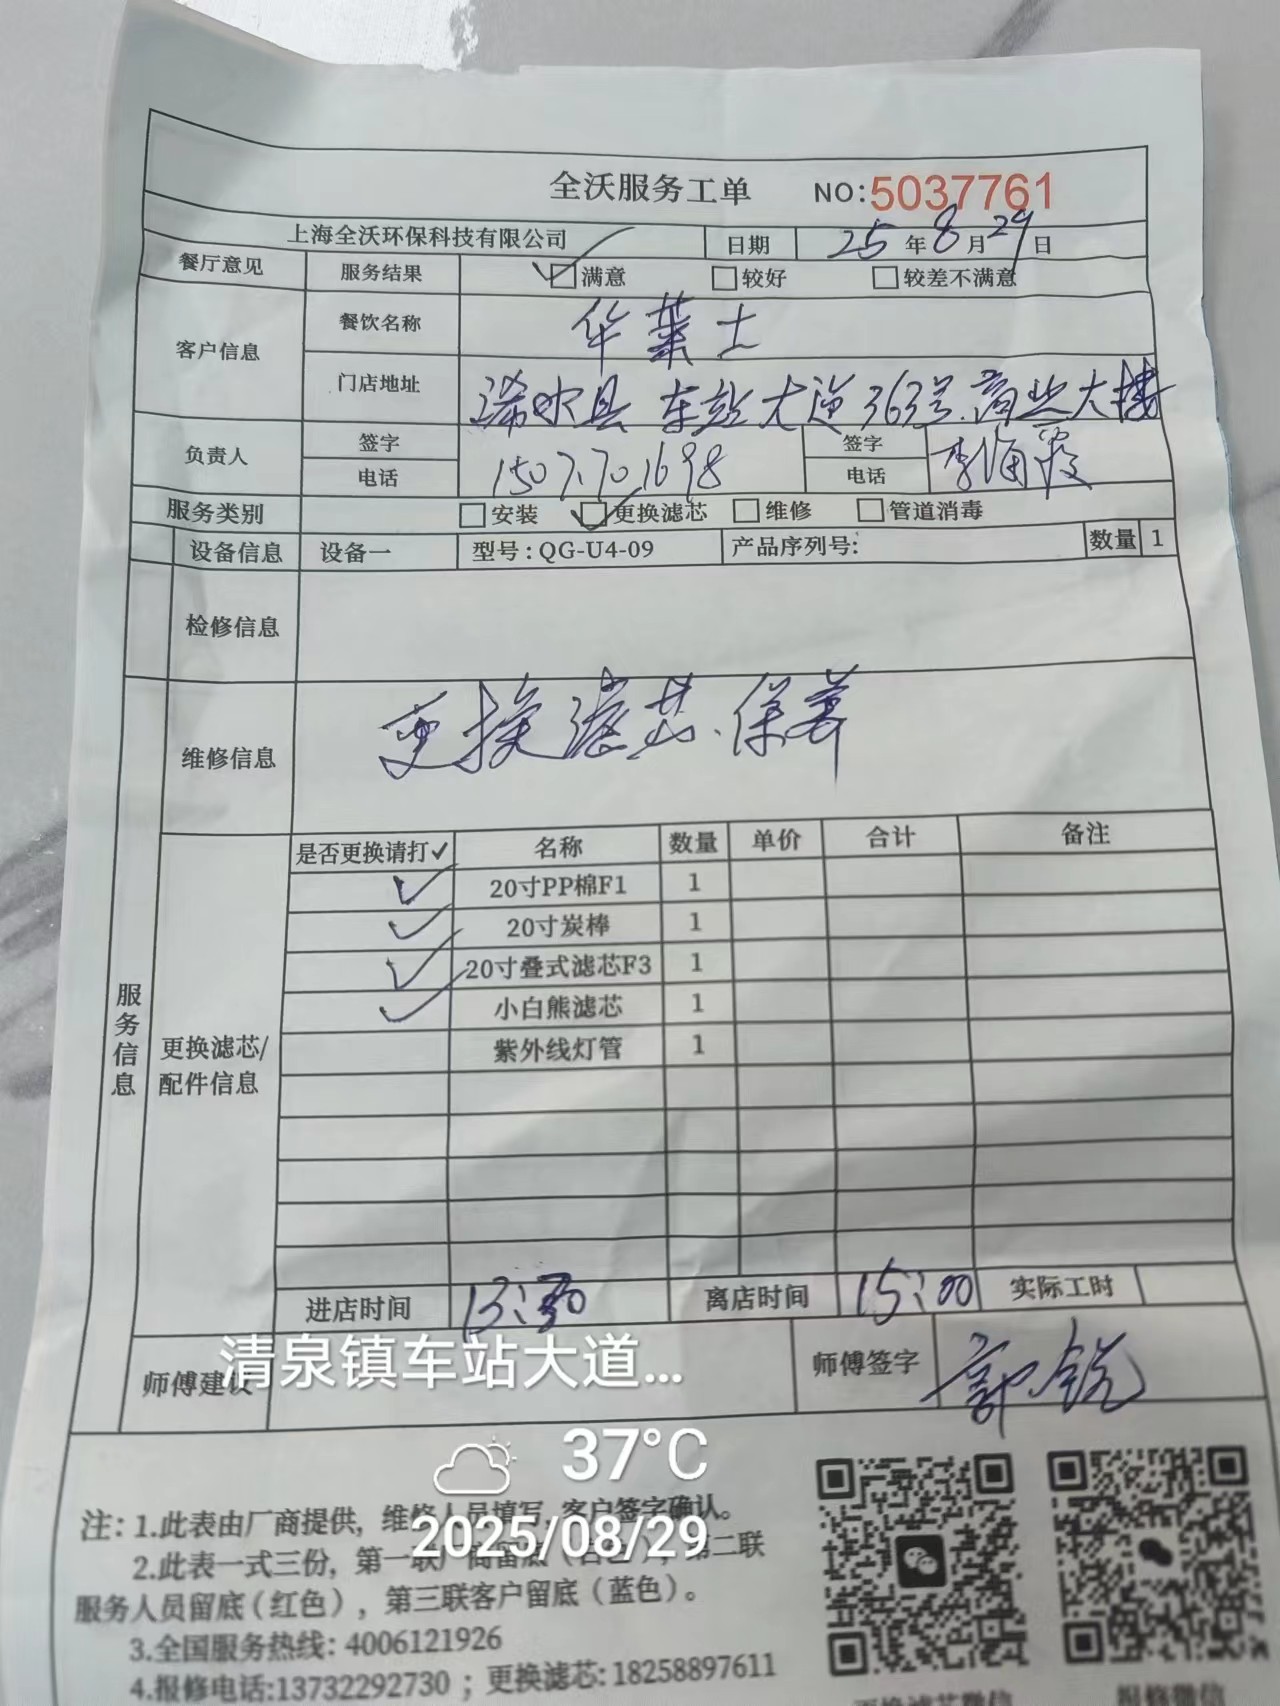 全沃服务工单 NO:5037761
上海全沃环保科技有限公司 日期 25年8月29日
餐厅意见 服务结果 ✓□满意 □较好 □较差不满意
客户信息 餐饮名称 华莱士
门店地址 浠水县 车站大道363号.商业大楼
负责人 签字 签字
电话 1507.701698 电话 李海霞
服务类别 □安装 ✓□更换滤芯 □维修 □管道消毒
设备信息 设备一 型号:QG-U4-09 产品序列号: 数量 1
检修信息
维修信息 更换滤芯.保养
服务信息
更换滤芯/
配件信息
是否更换请打✓ 名称 数量 单价 合计 备注
✓ 20寸PP棉F1 1
✓ 20寸炭棒 1
✓ 20寸叠式滤芯F3 1
✓ 小白熊滤芯 1
紫外线灯管 1
进店时间 13:30 离店时间 15:00 实际工时
师傅建议 师傅签字 郭锐
清泉镇车站大道...
37℃
2025/08/29
注: 1.此表由厂商提供, 维修人员填写, 客户签字确认。
2.此表一式三份, 第一联厂商留底(白色), 第二联
服务人员留底(红色), 第三联客户留底(蓝色)。
3.全国服务热线: 4006121926
4.报修电话:13732292730 ; 更换滤芯: 18258897611
更换滤芯微信 报修微信